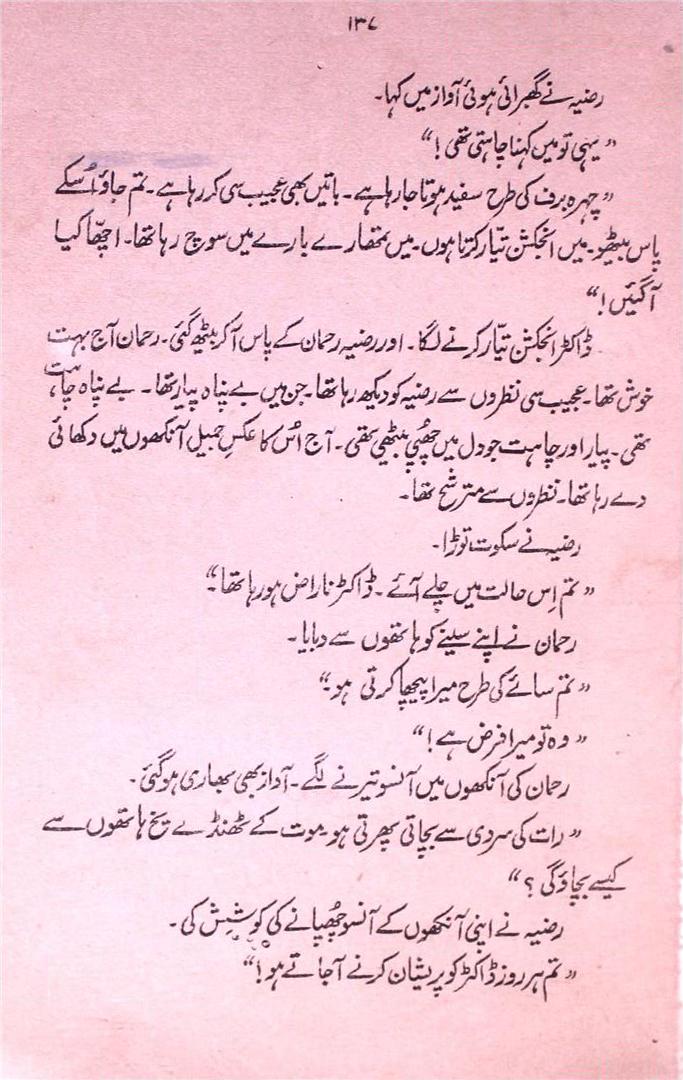 ۱۳۷
رضیہ نے گھبرائی ہوئی آواز میں کہا۔
” یہی تو میں کہنا چاہتی تھی !“
” چہرہ برف کی طرح سفید ہوتا جا رہا ہے۔ باتیں بھی عجیب سی کر رہا ہے۔ تم جاؤ اُسکے
پاس بیٹھو۔ میں انجکشن تیّار کرتا ہوں۔ میں تمھارے بارے میں سوچ رہا تھا۔ اچھّا کیا
آگئیں !“
ڈاکٹر انجکشن تیّار کرنے لگا۔ اور رضیہ رحمان کے پاس آ کر بیٹھ گئی۔ رحمان آج بہت
خوش تھا۔ عجیب سی نظروں سے رضیہ کو دیکھ رہا تھا۔ جن میں بے پناہ پیار تھا۔ بے پناہ چاہت
تھی۔ پیار اور چاہت جو دل میں چھُپی بیٹھی تھی۔ آج اُس کا عکسِ جمیل آنکھوں میں دکھائی
دے رہا تھا۔ نظروں سے مترشح تھا۔
رضیہ نے سکوت توڑا۔
” تم اِس حالت میں چلے آئے۔ ڈاکٹر ناراض ہو رہا تھا۔“
رحمان نے اپنے سینے کو ہاتھوں سے دبایا۔
” تم سائے کی طرح میرا پیچھا کرتی ہو۔“
” وہ تو میرا فرض ہے !“
رحمان کی آنکھوں میں آنسو تیرنے لگے۔ آواز بھی بھاری ہو گئی۔
” رات کی سردی سے بچاتی پھرتی ہو۔ موت کے ٹھنڈے یخ ہاتھوں سے
کیسے بچاؤ گی ؟“
رضیہ نے اپنی آنکھوں کے آنسو چھُپانے کی کوشِش کی۔
” تم ہر روز ڈاکٹر کو پریشان کرنے آ جاتے ہو !“